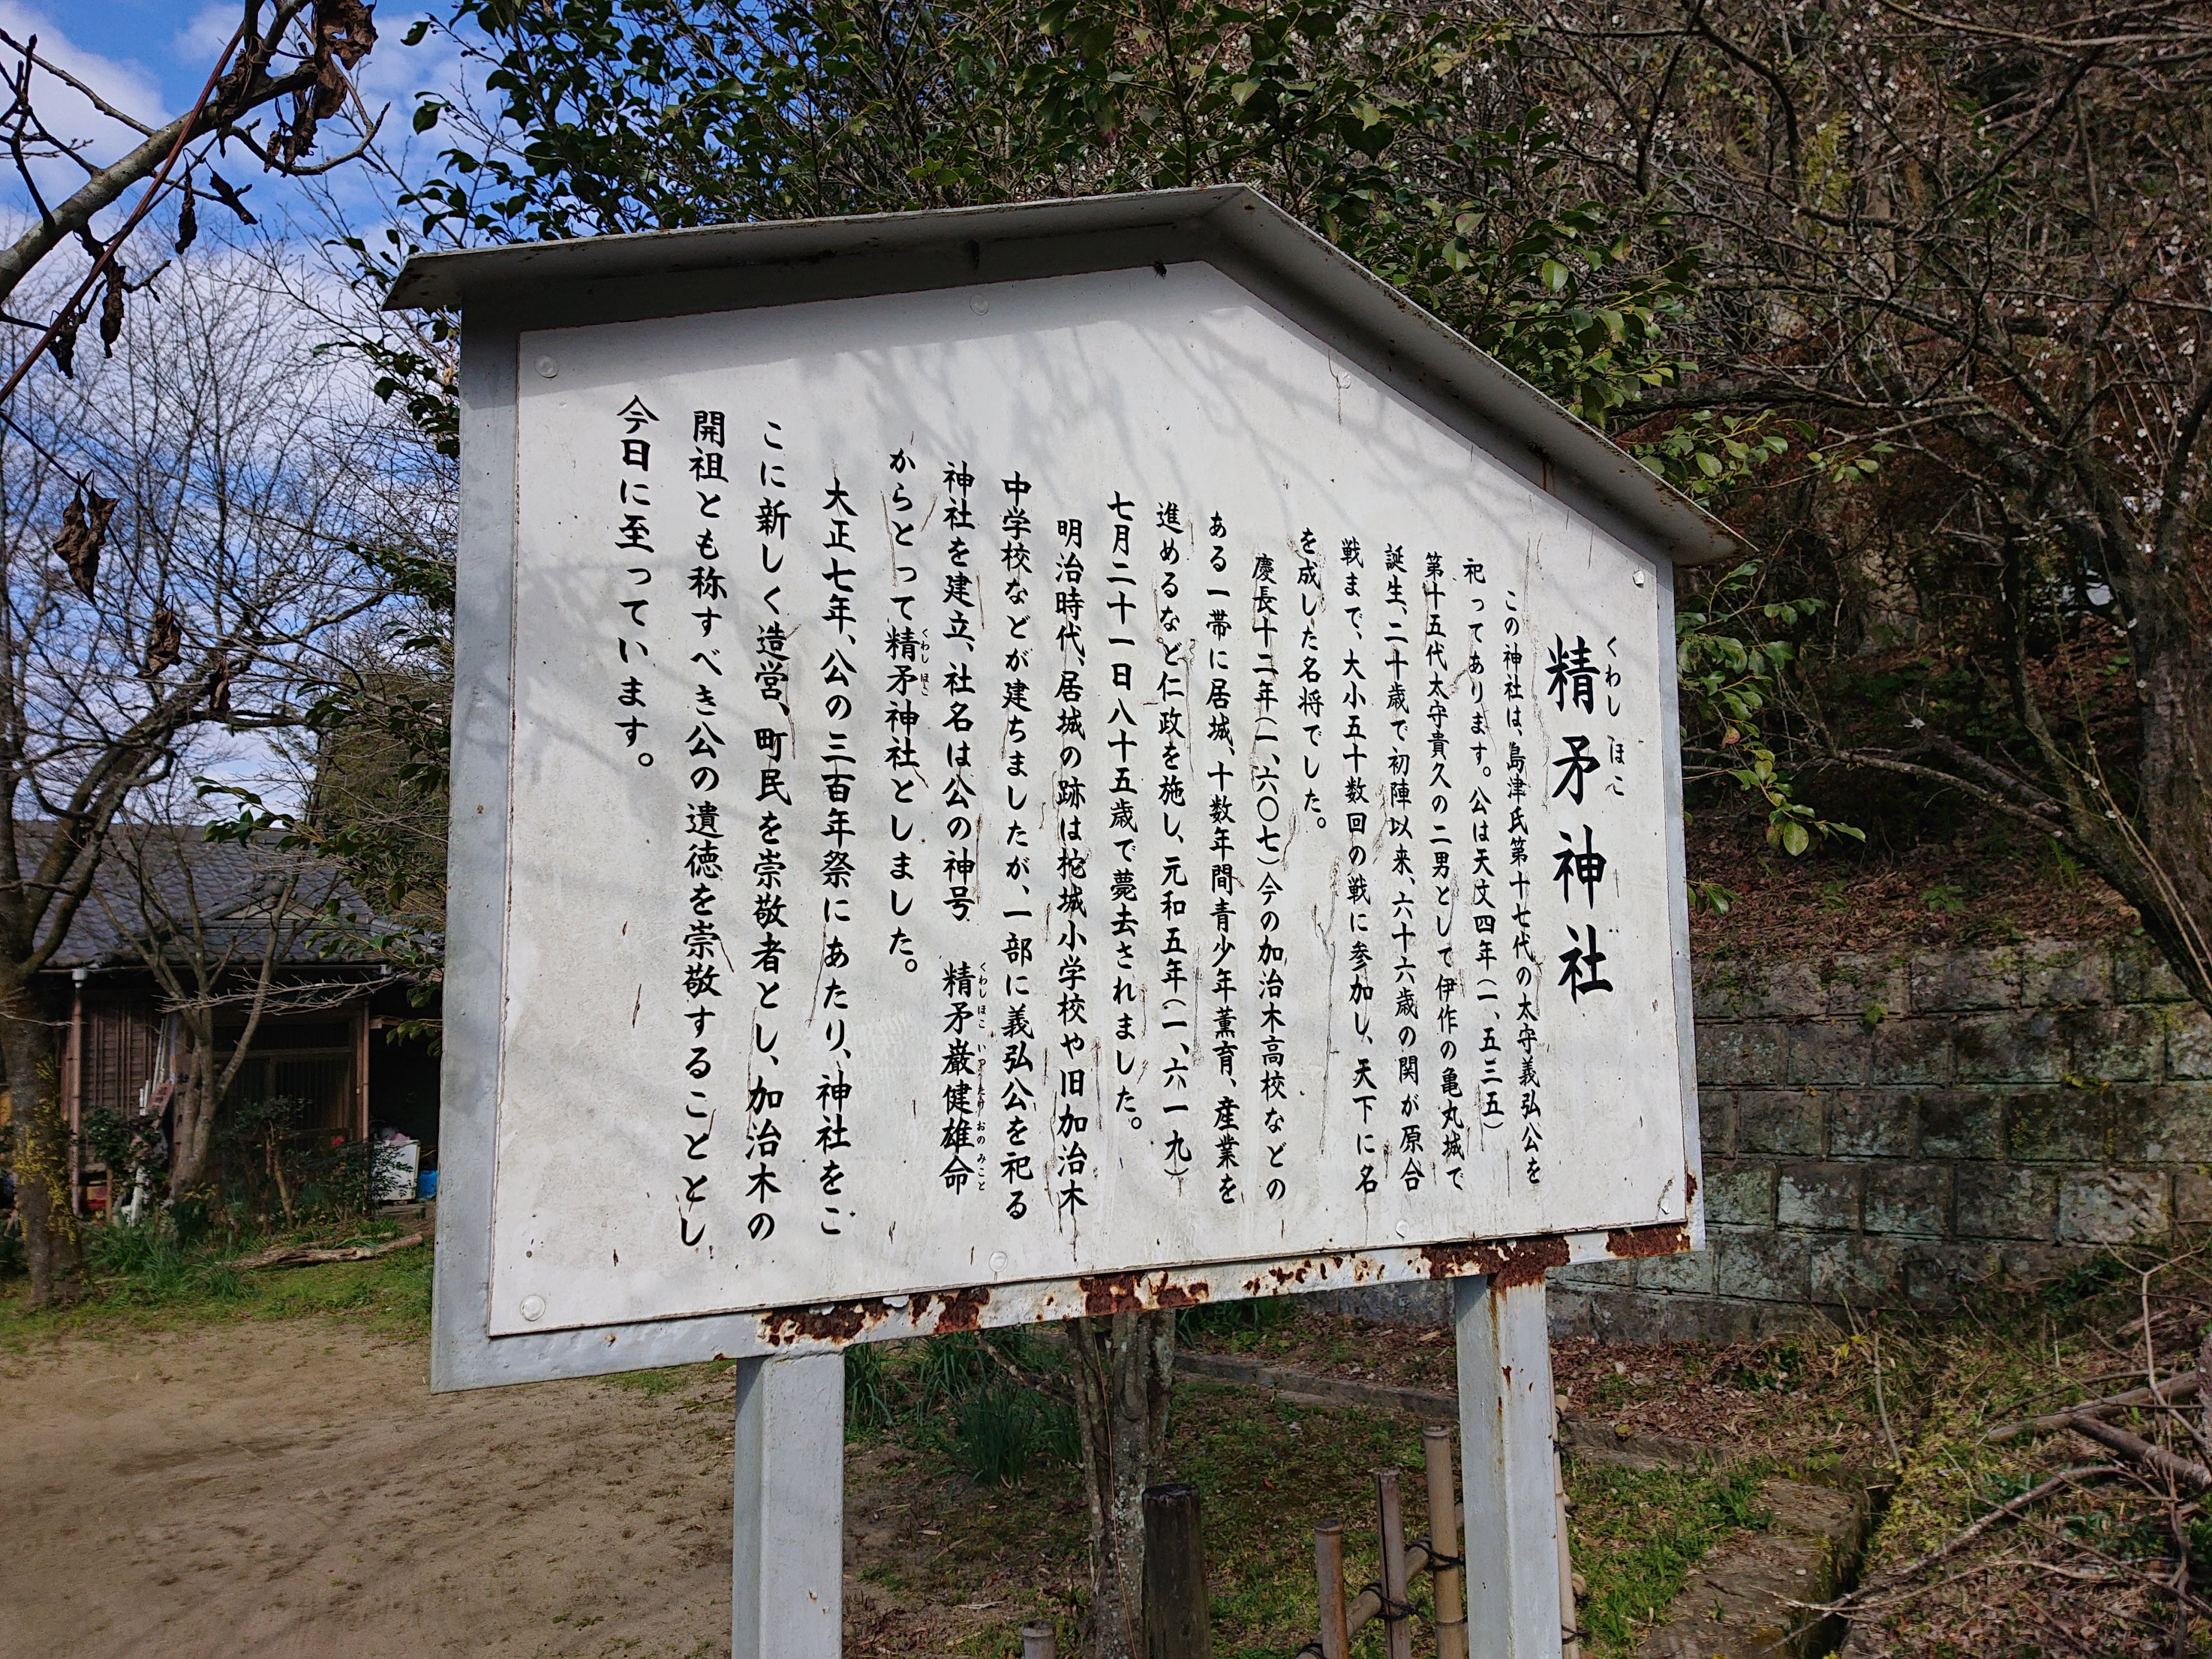 精矛神社
くわしほこ
この神社は、島津氏第十七代の太守義弘公を
祀ってあります。公は天文四年(一、五三五)
第十五代太守貴久の二男として伊作の亀丸城で
誕生、二十歳で初陣以来、六十六歳の関が原合
戦まで、大小五十数回の戦に参加し、天下に名
を成した名将でした。
慶長十二年(一、六〇七)今の加治木高校などの
ある一帯に居城、十数年間青少年薫育、産業を
進めるなど仁政を施し、元和五年(一、六一九)
七月二十一日八十五歳で薨去されました。
明治時代、居城の跡は柁城小学校や旧加治木
中学校などが建ちましたが、一部に義弘公を祀る
神社を建立、社名は公の神号 精矛厳健雄命
くわしほこ いつたけおのみこと
からとって精矛神社としました。
くわしほこ
大正七年、公の三百年祭にあたり、神社をこ
こに新しく造営、町民を崇敬者とし、加治木の
開祖とも称すべき公の遺徳を崇敬することとし
今日に至っています。